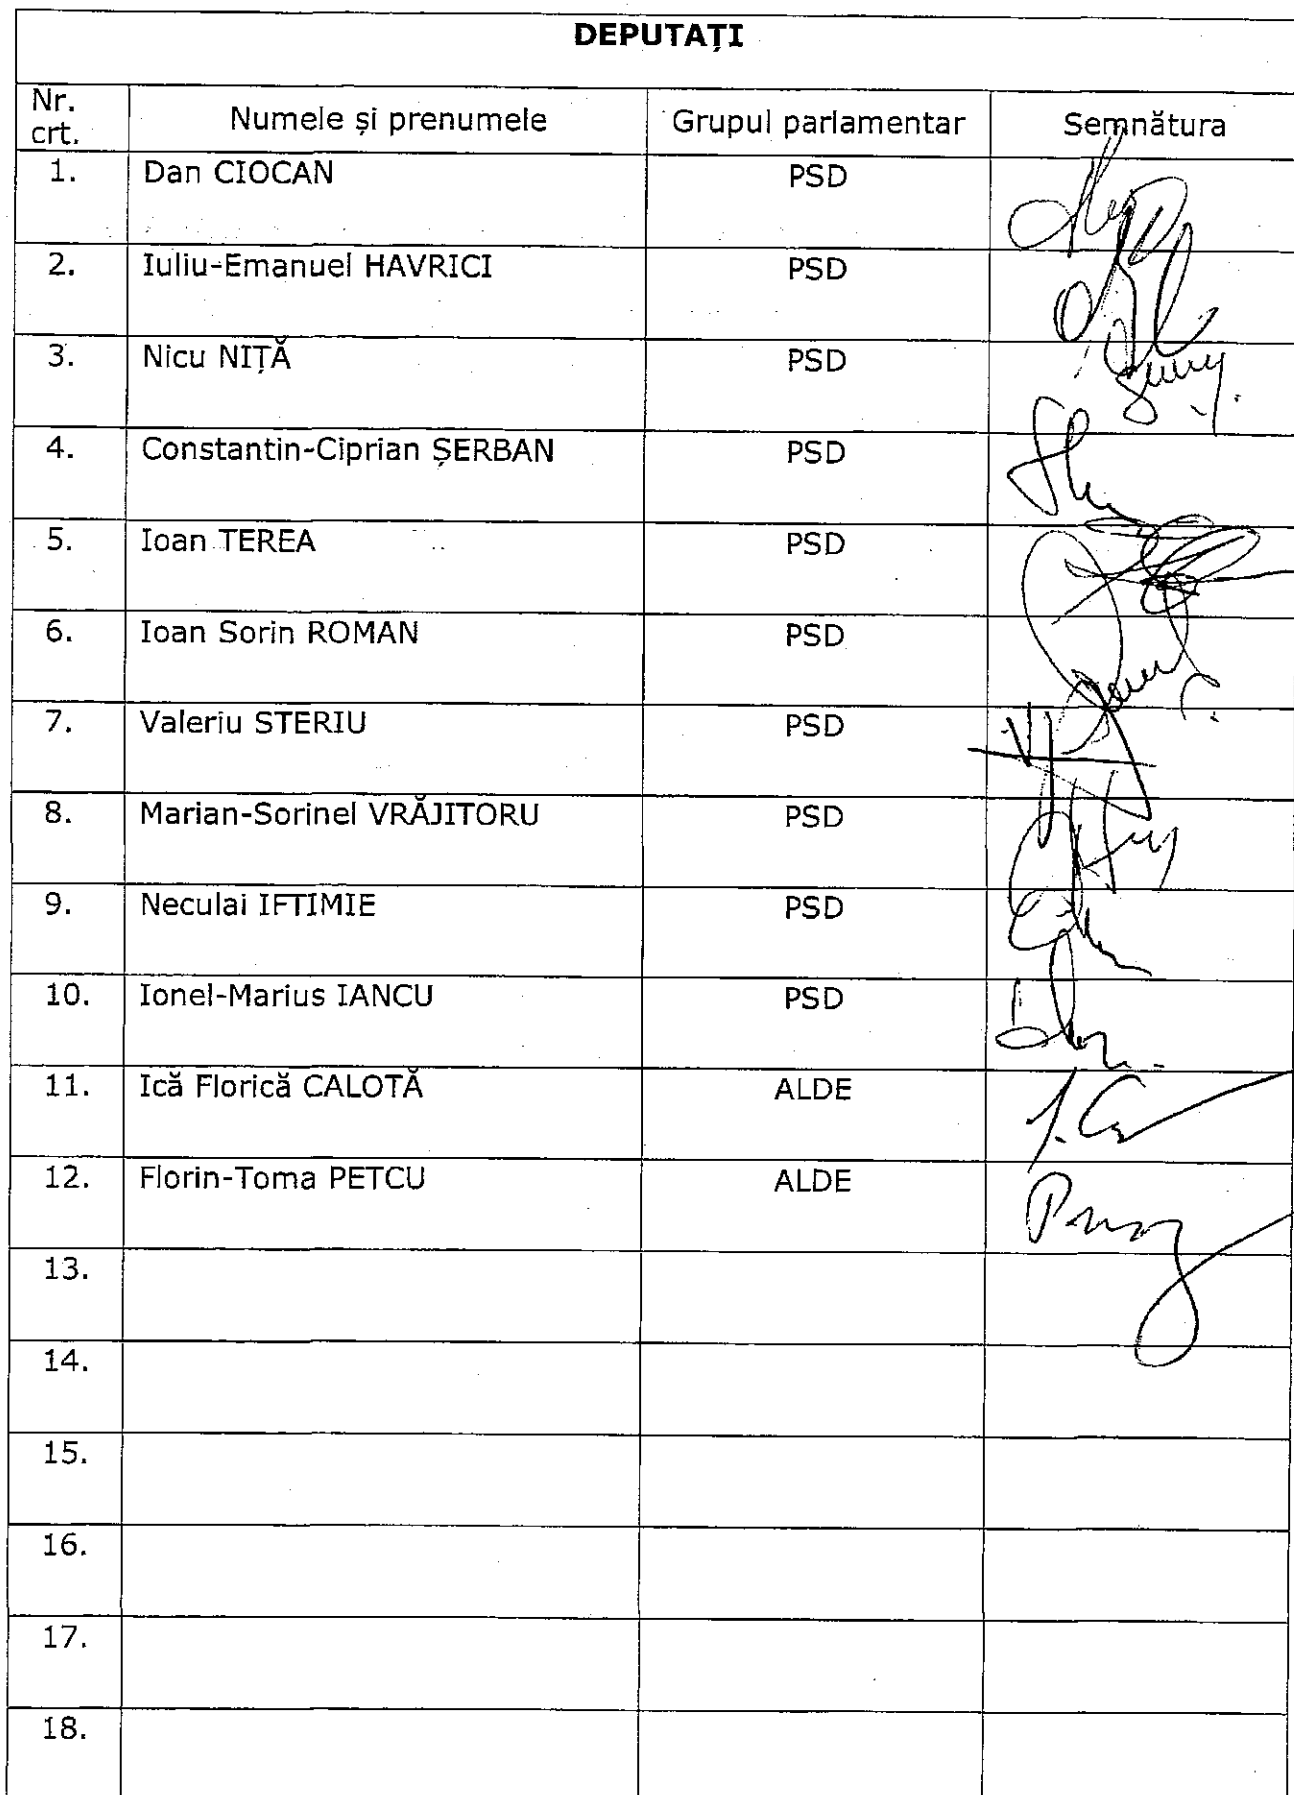 DEPUTAȚI
Nr. crt. Numele și prenumele Grupul parlamentar Semnătura
1. Dan CIOCAN PSD
2. Iuliu-Emanuel HAVRICI PSD
3. Nicu NIȚĂ PSD
4. Constantin-Ciprian ȘERBAN PSD
5. Ioan TEREA PSD
6. Ioan Sorin ROMAN PSD
7. Valeriu STERIU PSD
8. Marian-Sorinel VRĂJITORU PSD
9. Neculai IFTIMIE PSD
10. Ionel-Marius IANCU PSD
11. Ică Florică CALOTĂ ALDE
12. Florin-Toma PETCU ALDE
13.
14.
15.
16.
17.
18.